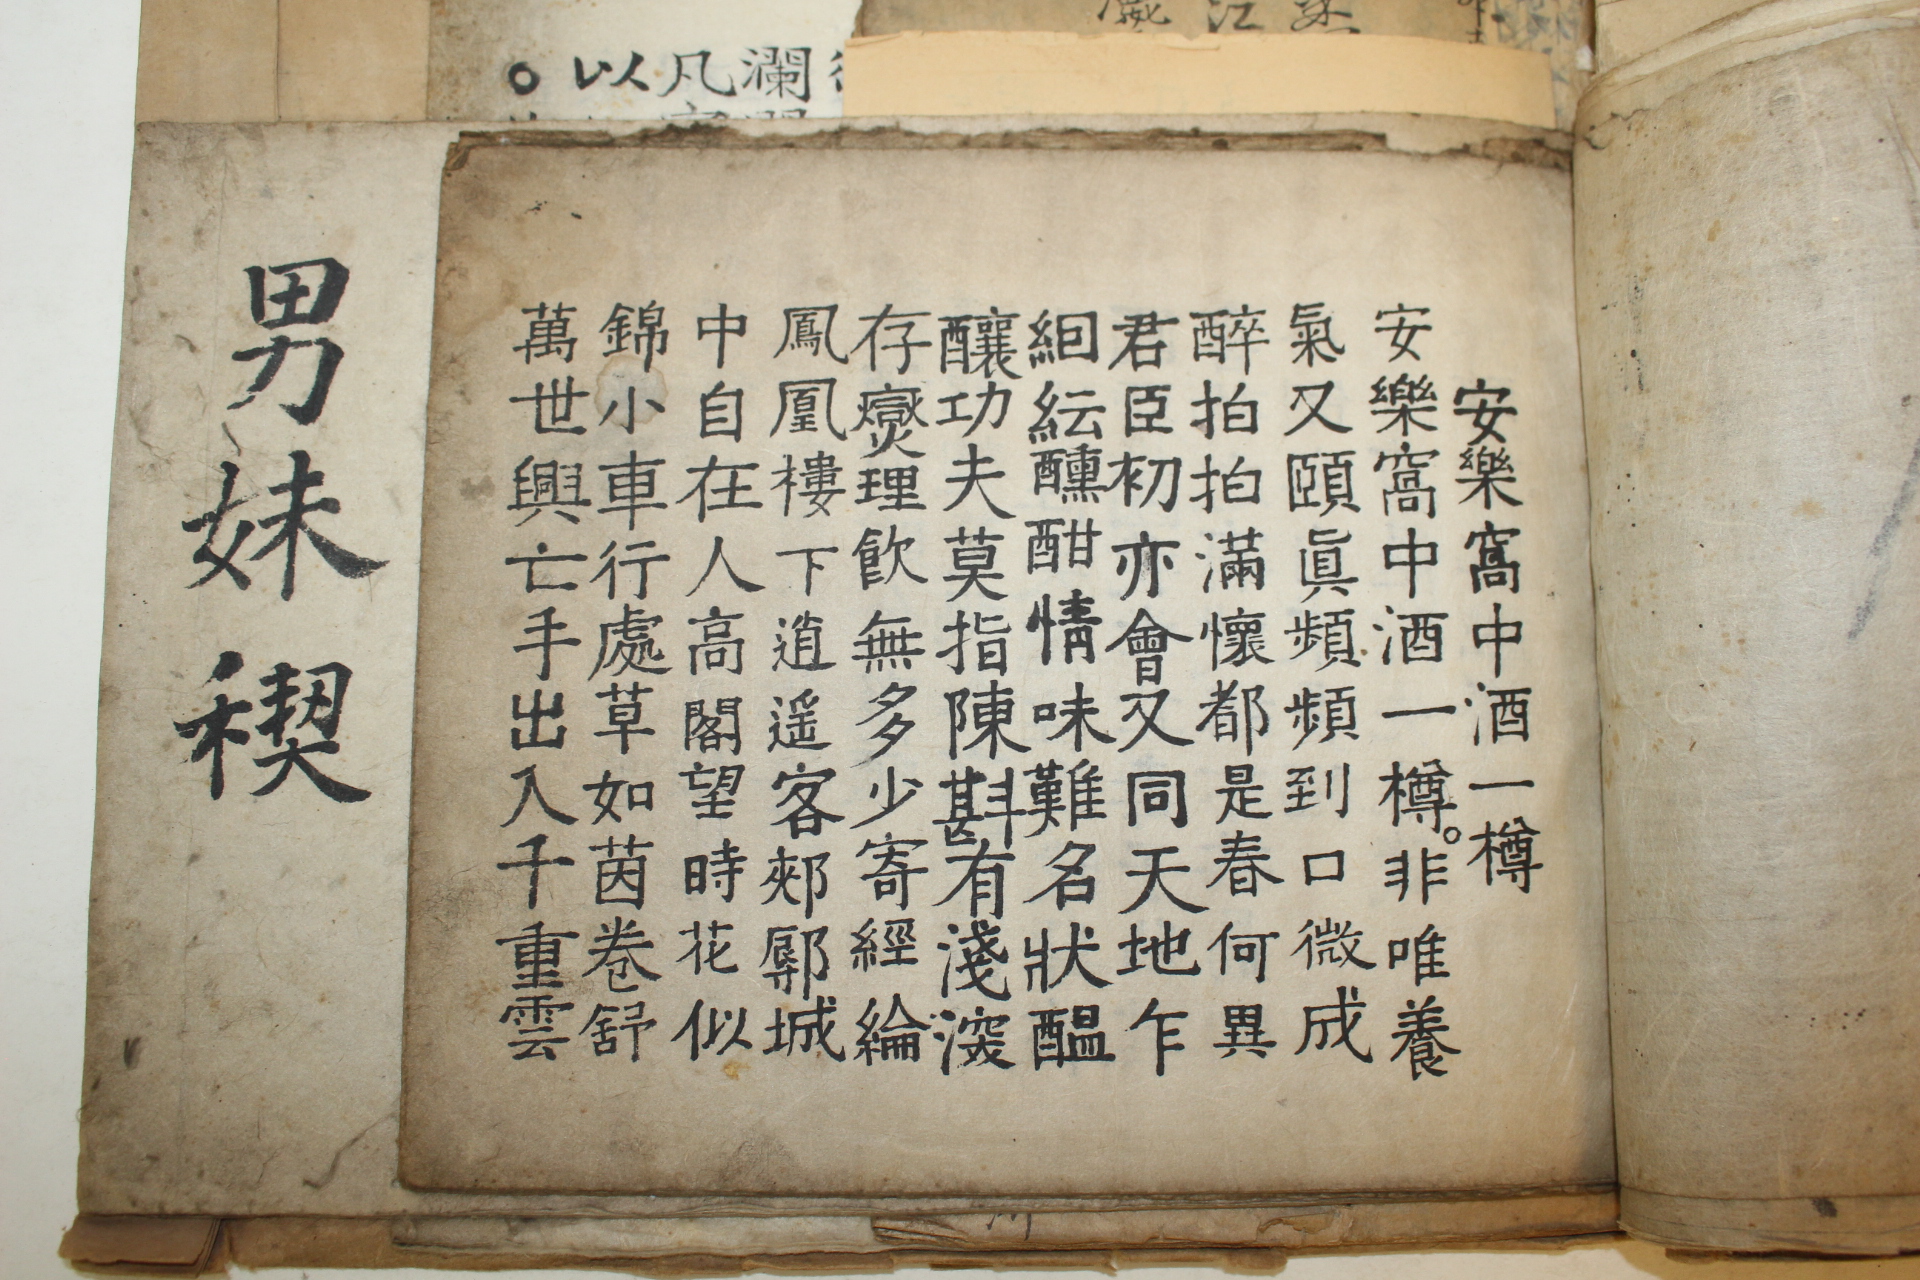 安樂窩中酒一樽
安樂窩中酒一樽。非唯養
氣又頤眞頻頻到口微成
醉拍拍滿懷都是春何異
君臣初亦會又同天地乍
絪紜醺酣情味難名狀醞
釀功夫莫指陳斟有淺深
存燮理飮無多少寄經綸
鳳凰樓下逍遥客郟鄏城
中自在人高閣望時花似
錦小車行處草如茵卷舒
萬世興亡手出入千重雲
男妹稧
○以凡瀾
江